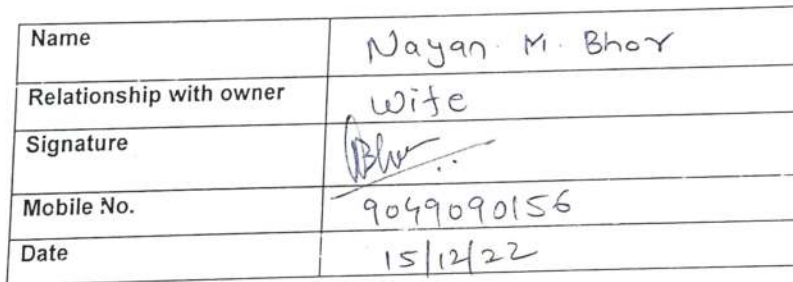 Name Nayan M. Bhor
Relationship with owner Wife
Signature Bhor
Mobile No. 9049090156
Date 15/12/22